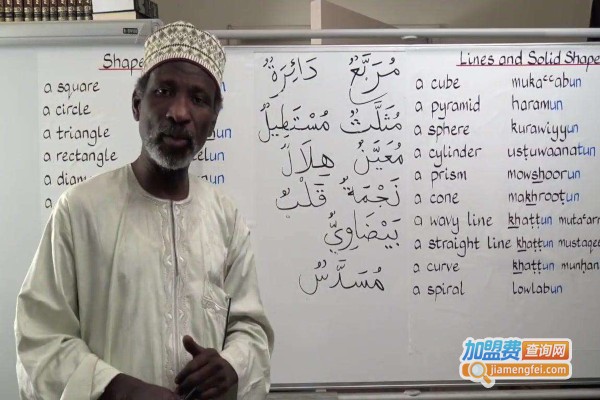 Shape
a square
a circle
a triangle
a rectangle
a diam
a
مُرَبَّعٌ دَائِرَةٌ
مُثَلَّثٌ مُسْتَطِيلٌ
مُعَيَّنٌ هِلَالٌ
نَجْمَةٌ قَلْبٌ
بَيْضَاوِيٌّ
مُسَدَّسٌ
Lines and Solid Shape
a cube muka''abun
a pyramid haramun
a sphere kurawiyyun
a cylinder usṭuwaanatun
a prism mowshoorun
a cone makhrooṭun
a wavy line khaṭṭun muta'arr
a straight line khaṭṭun mustaqee
a curve khaṭṭun munḥan
a spiral lowlabun
加盟费查询网
jiamengfei.com